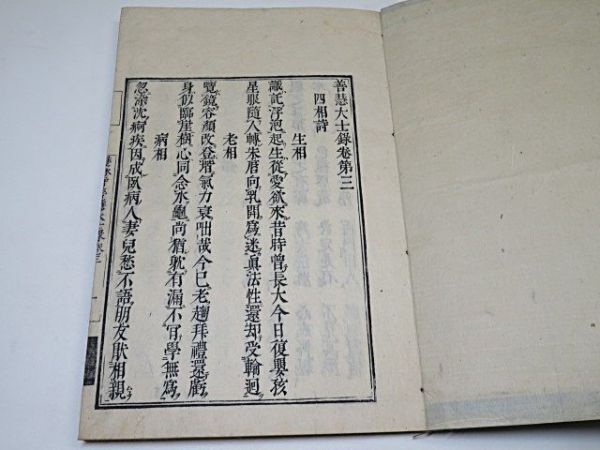 善慧大士錄卷第三
四相詩
生相
識託浮泡起生從愛欲來昔時曾長大今日復嬰孩
星眼隨人轉朱脣向乳開爲迷眞法性還却受輪迴
老相
覽鏡容顏改登堦氣力衰咄哉今已老趨拜禮還虧
身似臨崖樹心同念水龜尚猶躭有漏不肯學無爲
病相
忽染沈痾疾因成臥病人妻兒愁不語朋友厭相親